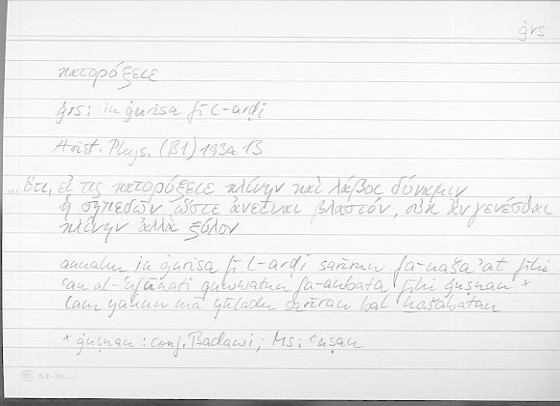 ġrs
κατορύξειε
ġrs: in ġurisa fī l-arḍi
Arist. Phys. (B1) 193a 13
... ὅτι, εἴ τις κατορύξειε κλίνην καὶ λάβοι δύναμιν
ἡ σηπεδὼν ὥστε ἀνεῖναι βλαστόν, οὐκ ἂν γενέσθαι
κλίνην ἀλλὰ ξύλον
annahu in ġurisa fī l-arḍi sarīrun fa-našaʾat fīhi
ʿan al-ʿufūnati quwwatun fa-anbata fīhi ġuṣnan +
lam yakun mā yūladu sarīran bal ḫašabatan
+ ġuṣnan: conj. Badawī; Ms: ʿuṣan